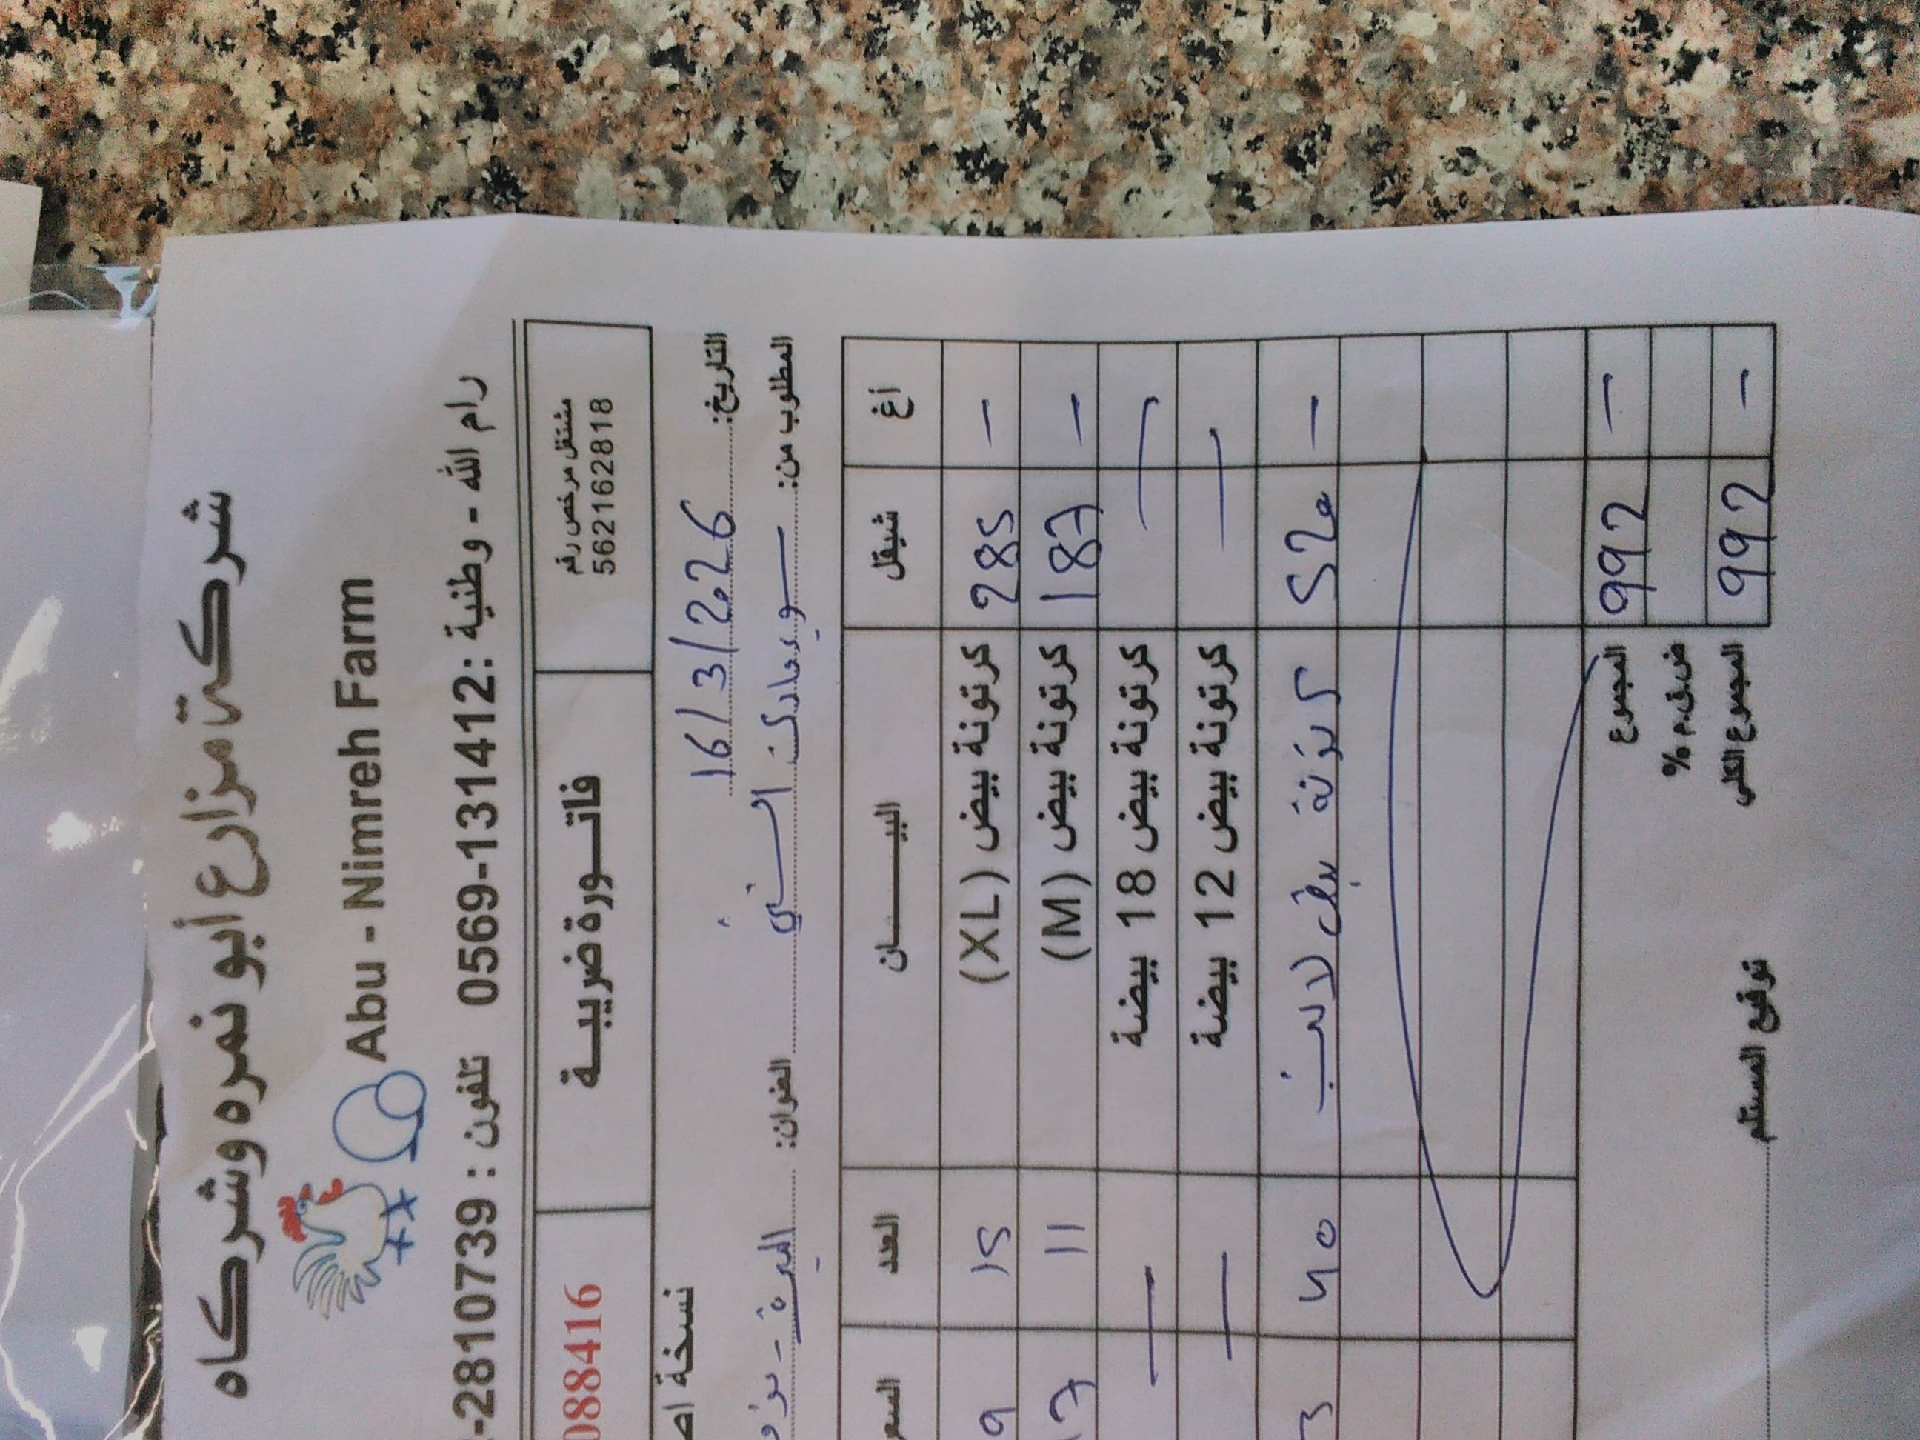 شركة مزارع أبو نمره وشركاه
Abu - Nimreh Farm
رام الله - وطنية : 0569-131412 تلفون : 2810739-
مشتغل مرخص رقم
562162818
فاتورة ضريبية
088416
التاريخ: 16/3/2026
نسخة
المطلوب من: سوبرماركت السني
العنوان: البيرة -
أغ شيقل البيان العدد السعر
— 285 كرتونة بيض (XL) 15 9
— 187 كرتونة بيض (M) 11 17
— — كرتونة بيض 18 بيضة — —
— — كرتونة بيض 12 بيضة — —
— 520 كرتونة بيض 40 3
— 992 المجموع
ض.ق.م %
— 992 المجموع الكلي
توقيع المستلم